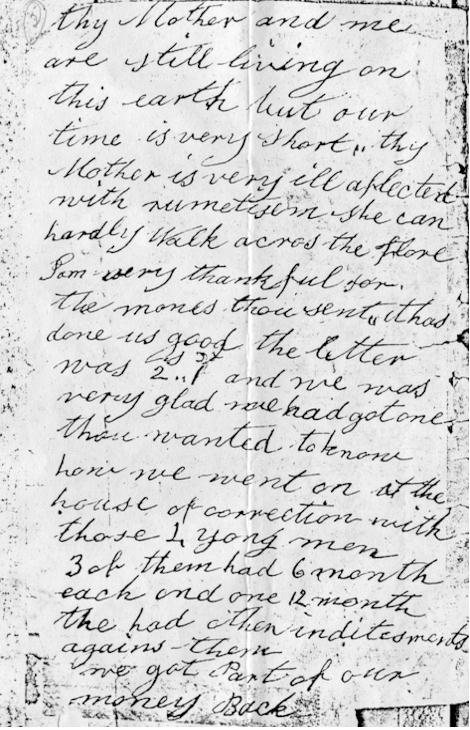 thy Mother and me
are still living on
this earth but our
time is very short,, thy
Mother is very ill aflected
with rumetisem she can
hardly Walk acros the flore
I am very thankful for
the mones thou sent,, it has
done us good the letter
was 2,, 1 and we was
very glad we had got one
thou wanted to know
how we went on at the
house of correction with
those 4 yong men
3 of them had 6 month
each and one 12 month
the had other inditesments
agains them
we got Part of our
money Back